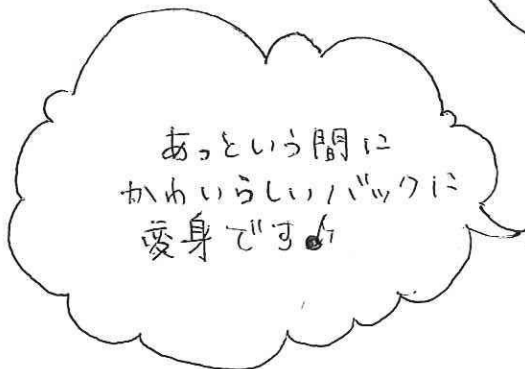 あっという間に
かわいらしいバックに
変身です♪